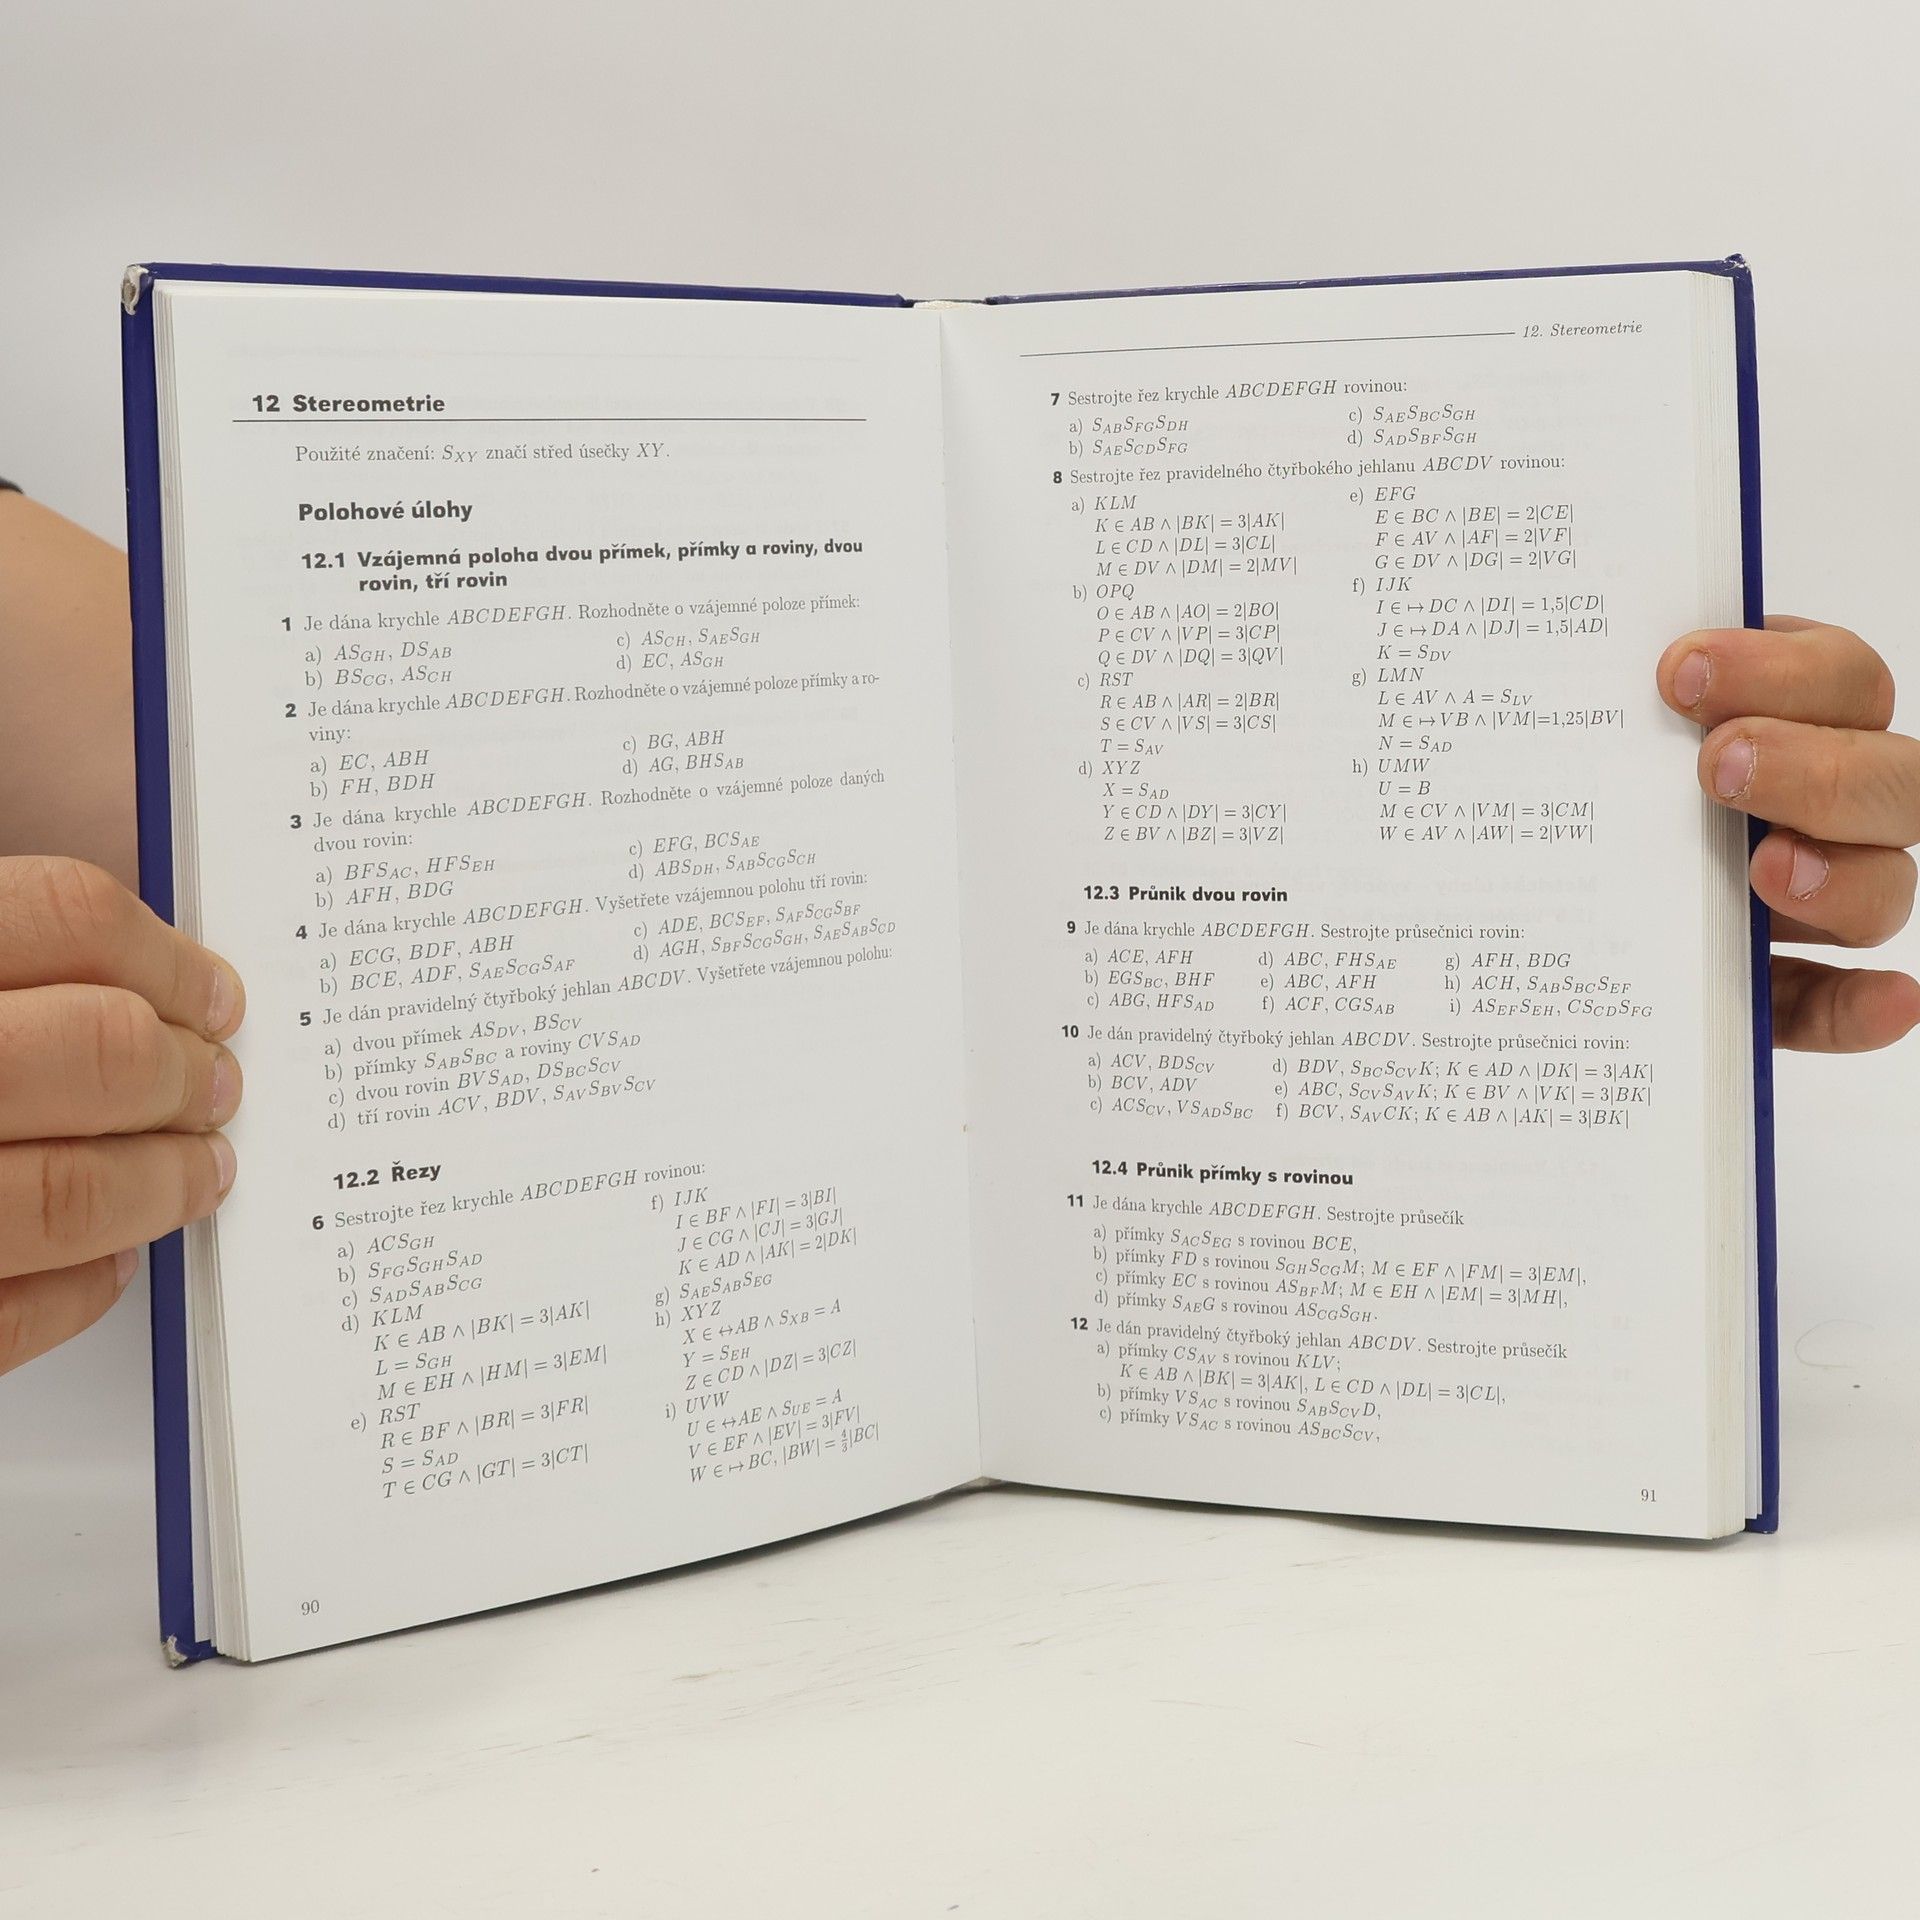 12 Stereometrie
Použité značení: S_XY značí střed úsečky XY.
Polohové úlohy
12.1 Vzájemná poloha dvou přímek, přímky a roviny, dvou
rovin, tří rovin
1 Je dána krychle ABCDEFGH. Rozhodněte o vzájemné poloze přímek:
a) AS_GH, DS_AB
b) BS_CG, AS_CH
c) AS_CH, S_AES_GH
d) EC, AS_GH
2 Je dána krychle ABCDEFGH. Rozhodněte o vzájemné poloze přímky a ro-
viny:
a) EC, ABH
b) FH, BDH
c) BG, ABH
d) AG, BHS_AB
3 Je dána krychle ABCDEFGH. Rozhodněte o vzájemné poloze daných
dvou rovin:
a) BFS_AC, HFS_EH
b) AFH, BDG
c) EFG, BCS_AE
d) ABS_DH, S_ABS_CGS_CH
4 Je dána krychle ABCDEFGH. Vyšetřete vzájemnou polohu tří rovin:
a) ECG, BDF, ABH
b) BCE, ADF, S_AES_CGS_AF
c) ADE, BCS_EF, S_AFS_CGS_BF
d) AGH, S_BFS_CGS_GH, S_AES_ABS_CD
5 Je dán pravidelný čtyřboký jehlan ABCDV. Vyšetřete vzájemnou polohu:
a) dvou přímek AS_DV, BS_CV
b) přímky S_ABS_BC a roviny CVS_AD
c) dvou rovin BVS_AD, DS_BCS_CV
d) tří rovin ACV, BDV, S_AVS_BVS_CV
12.2 Řezy
6 Sestrojte řez krychle ABCDEFGH rovinou:
a) ACS_GH
b) S_FGS_GHS_AD
c) S_ADS_ABS_CG
d) KLM
K ∈ AB ∧ |BK| = 3|AK|
L = S_GH
M ∈ EH ∧ |HM| = 3|EM|
e) RST
R ∈ BF ∧ |BR| = 3|FR|
S = S_AD
T ∈ CG ∧ |GT| = 3|CT|
f) IJK
I ∈ BF ∧ |FI| = 3|BI|
J ∈ CG ∧ |CJ| = 3|GJ|
K ∈ AD ∧ |AK| = 2|DK|
g) S_AES_ABS_EG
h) XYZ
X ∈ ↔AB ∧ S_XB = A
Y = S_EH
Z ∈ CD ∧ |DZ| = 3|CZ|
i) UVW
U ∈ ↔AE ∧ S_UE = A
V ∈ EF ∧ |EV| = 3|FV|
W ∈ ↦BC, |BW| = 4/3|BC|
90
12. Stereometrie
7 Sestrojte řez krychle ABCDEFGH rovinou:
a) S_ABS_FGS_DH
b) S_AES_CDS_FG
c) S_AES_BCS_GH
d) S_ADS_BFS_GH
8 Sestrojte řez pravidelného čtyřbokého jehlanu ABCDV rovinou:
a) KLM
K ∈ AB ∧ |BK| = 3|AK|
L ∈ CD ∧ |DL| = 3|CL|
M ∈ DV ∧ |DM| = 2|MV|
b) OPQ
O ∈ AB ∧ |AO| = 2|BO|
P ∈ CV ∧ |VP| = 3|CP|
Q ∈ DV ∧ |DQ| = 3|QV|
c) RST
R ∈ AB ∧ |AR| = 2|BR|
S ∈ CV ∧ |VS| = 3|CS|
T = S_AV
d) XYZ
X = S_AD
Y ∈ CD ∧ |DY| = 3|CY|
Z ∈ BV ∧ |BZ| = 3|VZ|
e) EFG
E ∈ BC ∧ |BE| = 2|CE|
F ∈ AV ∧ |AF| = 2|VF|
G ∈ DV ∧ |DG| = 2|VG|
f) IJK
I ∈ ↦DC ∧ |DI| = 1,5|CD|
J ∈ ↦DA ∧ |DJ| = 1,5|AD|
K = S_DV
g) LMN
L ∈ AV ∧ A = S_LV
M ∈ ↦VB ∧ |VM|=1,25|BV|
N = S_AD
h) UMW
U = B
M ∈ CV ∧ |VM| = 3|CM|
W ∈ AV ∧ |AW| = 2|VW|
12.3 Průnik dvou rovin
9 Je dána krychle ABCDEFGH. Sestrojte průsečnici rovin:
a) ACE, AFH
b) EGS_BC, BHF
c) ABG, HFS_AD
d) ABC, FHS_AE
e) ABC, AFH
f) ACF, CGS_AB
g) AFH, BDG
h) ACH, S_ABS_BCS_EF
i) AS_EFS_EH, CS_CDS_FG
10 Je dán pravidelný čtyřboký jehlan ABCDV. Sestrojte průsečnici rovin:
a) ACV, BDS_CV
b) BCV, ADV
c) ACS_CV, VS_ADS_BC
d) BDV, S_BCS_CVK; K ∈ AD ∧ |DK| = 3|AK|
e) ABC, S_CVS_AVK; K ∈ BV ∧ |VK| = 3|BK|
f) BCV, S_AVCK; K ∈ AB ∧ |AK| = 3|BK|
12.4 Průnik přímky s rovinou
11 Je dána krychle ABCDEFGH. Sestrojte průsečík
a) přímky S_ACS_EG s rovinou BCE,
b) přímky FD s rovinou S_GHS_CGM; M ∈ EF ∧ |FM| = 3|EM|,
c) přímky EC s rovinou AS_BFM; M ∈ EH ∧ |EM| = 3|MH|,
d) přímky S_AEG s rovinou AS_CGS_GH.
12 Je dán pravidelný čtyřboký jehlan ABCDV. Sestrojte průsečík
a) přímky CS_AV s rovinou KLV;
K ∈ AB ∧ |BK| = 3|AK|, L ∈ CD ∧ |DL| = 3|CL|,
b) přímky VS_AC s rovinou S_ABS_CVD,
c) přímky VS_AC s rovinou AS_BCS_CV,
91